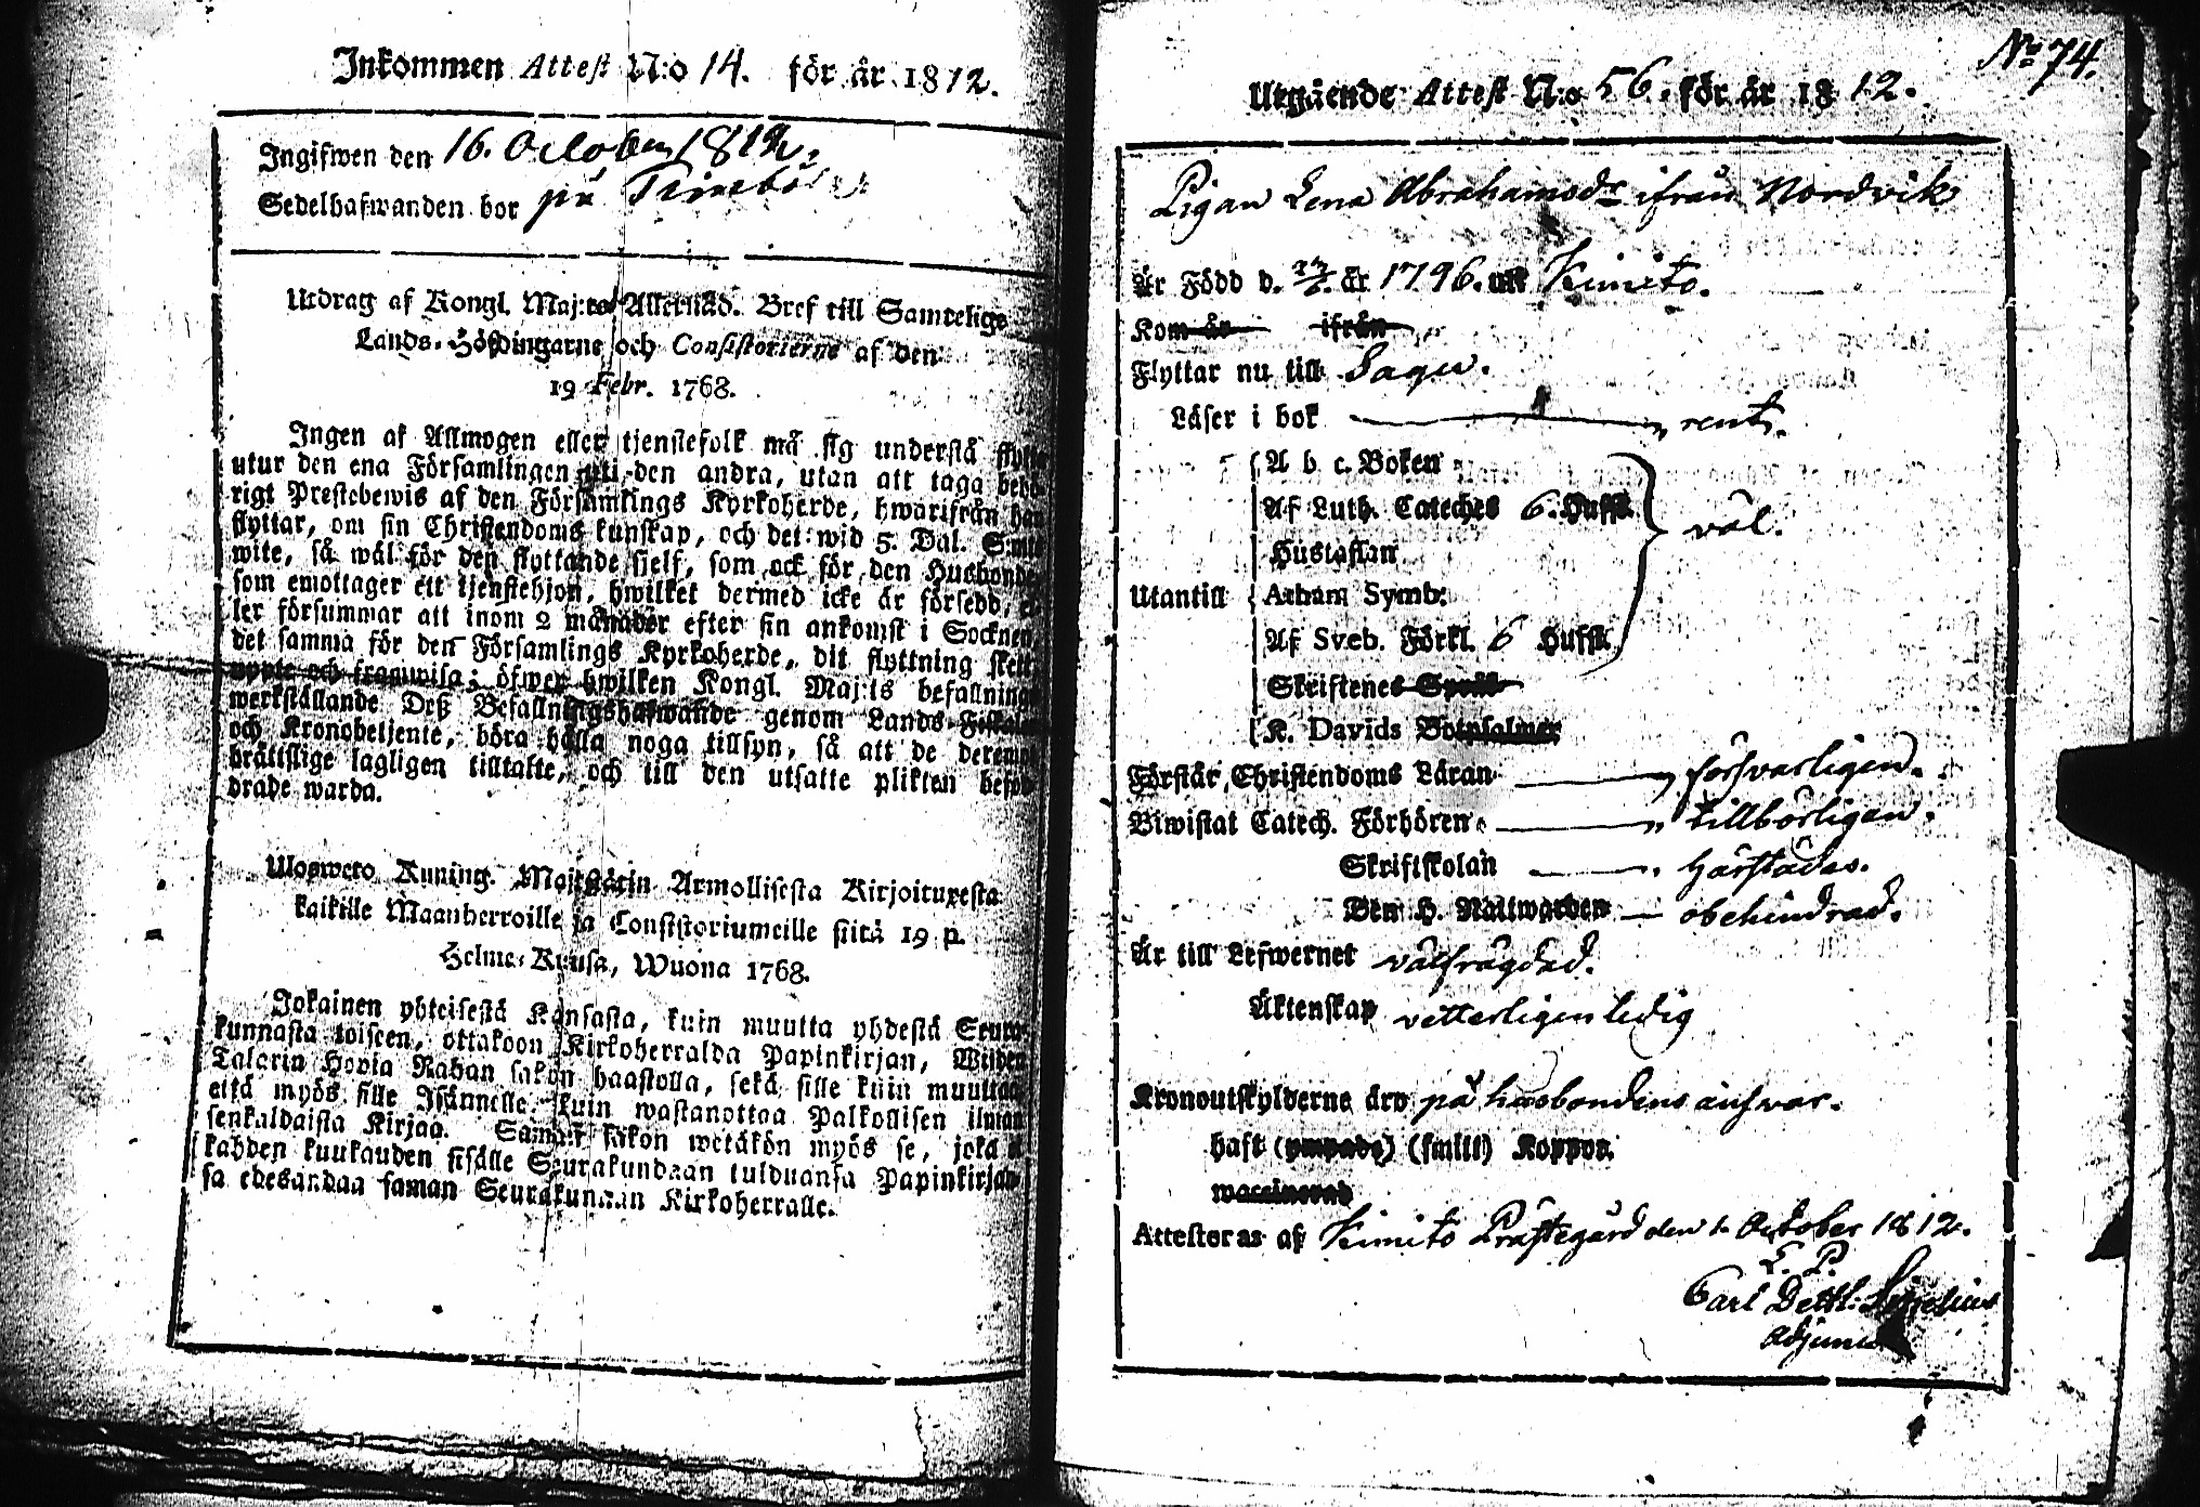 Inkommen Attest N:o 14. för år 1812.
Ingifwen den 16. October 1812.
Sedelhafwanden bor på
Utdrag af Kongl. Maj:ts Allernåd. Bref till Samtelige
Lands-Höfdingarne och Consistorierne af den
19 Febr. 1768.
Ingen af Allmogen eller tjenstefolk må sig understå flytta
utur den ena Församlingen uti den andra, utan att taga behö-
rigt Prestebewis af den Församlings Kyrkoherde, hwarifrån han
flyttar, om sin Christendoms kunskap, och det wid 5. Dal. S:mts
wite, så wäl för den flyttande sjelf, som ock för den Husbonde
som emottager ett tjenstehjon, hwilket dermed icke är försedd, el-
ler försummar att inom 2 månader efter sin ankomst i Socknen,
det samma för den Församlings Kyrkoherde, dit flyttning skett
uppte och framwisa; öfwer hwilken Kongl. Maj:ts befallnings
werkställande Deß Befallningshafwande genom Lands-Fiskaler
och Kronobetjente, böra hålla noga tillsyn, så att de deremot
brättslige lagligen tilltalte, och till den utsatte plikten befor-
drade warda.
Ulosweto Kuning. Majestätin Armollisesta Kirjoituxesta
kaikille Maanherroille ja Consistoriumeille siitä 19 p.
Helme-Kuusa, Wuona 1768.
Jokainen yhteisestä Kansasta, kuin muutta yhdestä Seura-
kunnasta toiseen, ottakoon Kirkoherralda Papinkirjan, Wiiden
Talarin Hopia Rahan sakon haastolla, sekä sille kuin muuttaa
että myös sille Isännelle, kuin wastanottaa Palkollisen ilman
senkaldaista Kirjaa. Saman sakon wetäkön myös se, joka ei
kahden kuukauden sisälle Seurakundaan tulduansa Papinkirjan-
sa edesandaa saman Seurakunnan Kirkoherralle.
No 74.
Utgående Attest N:o 56. för år 1812.
Pigan Lena Abrahamsdr ifrån Nordvik
Är Född d. år 1796. uti Kimito.
Kom år ifrån
Flyttar nu till Sagu.
Läser i bok rent.
A b c. Boken
Af Luth. Cateches 6. Huffst.
Hustaflan väl.
Utantill Athan Symb.
Af Sveb. Förkl. 6 Huffst.
Skriftenes Språk
K. Davids Botpsalmer
Förstår Christendoms Läran försvarligen.
Biwistat Catech. Förhören tillbörligen.
Skriftskolan härstädes.
Den H. Nattwarden obehindrad.
Är till Lefwernet välfrägdad.
Äktenskap vetterligen ledig
Kronoutskylderne äro på husbondens answar.
haft (ympade) (smitt) Koppor.
waccinerad
Attesteras af Kimito Prästegård den 1. October 1812.
Carl Dettl.
Adjunct